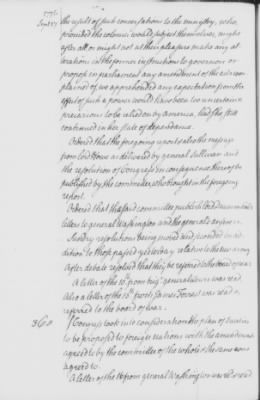 1776
Sept. 17
the result of such conversations to the ministry, who,
provided the colonies would subject themselves, might
after all or might not at their pleasure make any al-
terations in the former instructions to governors or
propose in parliament any amendment of the acts com
plained of we apprehended any expectation from the
effect of such a power would have been too uncertain &
precarious to be relied on by America, had she still
continued in her state of dependance.
Ordered that the foregoing report & also the message
from lord Howe as delivered by general Sullivan and
the resolution of Congress in consequence thereof be
published by the committee, who brought in the foregoing
report.
Ordered that the said committee publish lord Drummonds
letters to general Washington and the generals answers.
Sundry resolutions being moved and seconded in ad
dition to those passed yesterday relative to the new army
After debate resolved that they be referred to the board of war.
A letter of the 10th from brigr general was read
Also a letter of the 15th from James Forrest was read &
referred to the board of war.
360
Congress took into consideration the plan of treaties
to be proposed to foreign nations with the amendments
agreed to by the committee of the whole & the same was
agreed to.
A letter of the 16 from general Washington was read